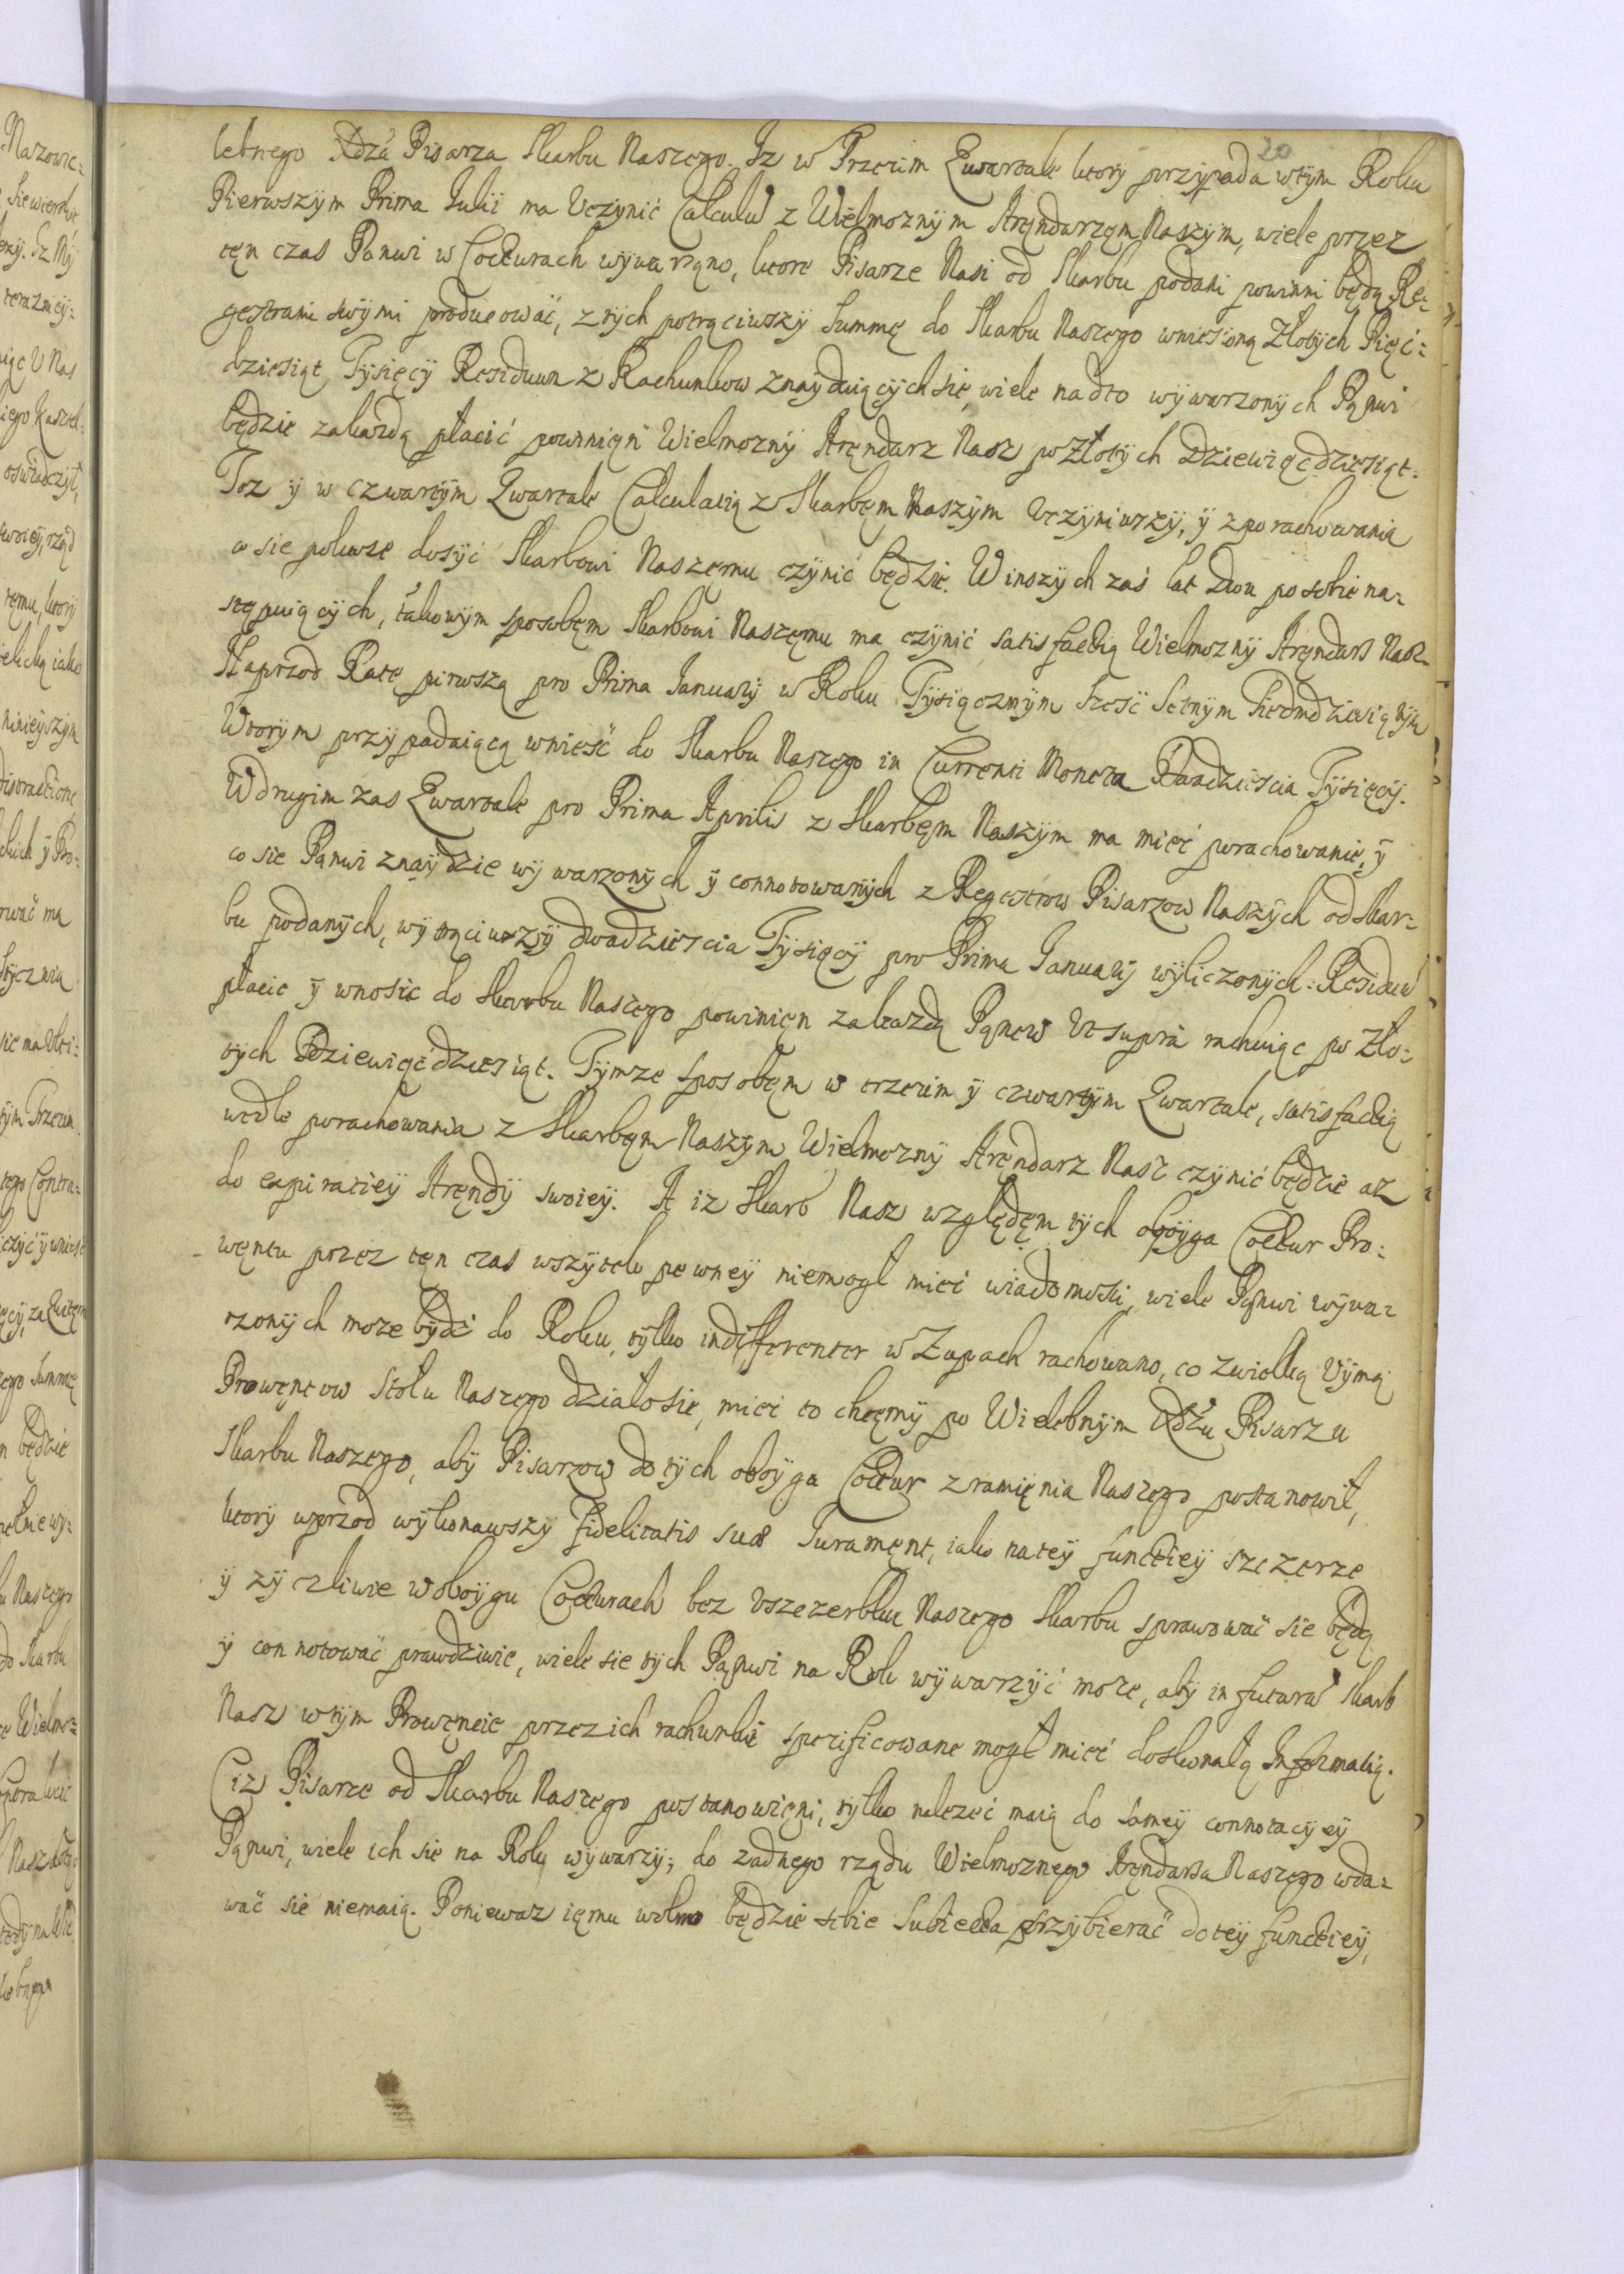 20
lebnego Xdza Pisarza Skarbu Naszego. Iz w Trzecim Kwartale ktory przypada wtym Roku
Pierwszym Prima Iulii ma Uczynić Calculū z Wielmoznym Aręndarzęm Naszym, wiele przez
tęn czas Panwi w Cocturach wywarzono, ktore Pisarze Nasi od Skarbu podani powinni będą Re-
gestrami swymi producować, z tych potrąciwszy Summę do Skarbu Naszego wniesioną Złotych Pięć-
dziesiąt Tysięcy Residuum z Rachunkow znayduiących się, wiele nadto wywarzonych Pąnwi
będzie zakozdą płacić powinięn Wielmozny Aręndarz Nasz po Złotych Dziewiąćdziesiąt.
Toz y w czwartym Kwartale Calculatią z Skarbęm Naszym Uczyniwszy, y z porachowania
co sie pokaze dosyć Skarbowi Naszemu czynić będzie. W inszych zaś lat Dwu po sobie na-
stępuiących, takowym sposobęm Skarbowi Naszęmu ma czynić satisfactią Wielmozny Aręndarz Nasz.
Naprzod Ratę pirwszą pro Prima Ianuarij w Roku Tysiącznym Sześć Setnym Siedmdziesiątym
Wtorym przypadaiącą wnieść do Skarbu Naszego in Currenti Moneta Dwadzieścia Tysięcy.
W drugim zas Kwartale pro Prima Aprilis z Skarbęm Naszym ma mieć porachowanie, y
co sie Pąnwi znaydzie wywarzonych y connotowanych z Regestrow Pisarzow Naszych od Skar-
bu podanych, wytrąciwszy dwadzieścia Tysięcy pro Prima Ianuarij wyliczonych. Residuū
płacić y wnosić do Skarbu Naszego powinięn zakazdą Pąnew Ut supra rachuiąc po Zło-
tych Dziewięćdziesiąt. Tymze sposobęm w trzecim y czwartym Kwartale, satisfactią
wedle porachowania z Skarbęm Naszym Wielmozny Aręndarz Nasz czynić będzie az
do expiratiey Aręndy swoiey. A iz Skarb Nasz względęm tych oboyga Coctur Pro-
węntu przez tęn czas wszytek pewney niemogł mieć wiadomości, wiele Pąnwi wywa-
rzonych moze bydź do Roku, tylko indifferenter w Zupach rachowano, co z wielką Uymą
Prowęntow Stołu Naszego działosie, mieć to chcęmy po Wielebnym Xdzu Pisarzu
Skarbu Naszego, aby Pisarzow do tych oboyga Coctur z ramięnia Naszego postanowił,
ktory uprzod wykonawszy fidelitatis suae Iuramęnt, iako na tey functiey szczerze
y zyczliwie w oboygu Cocturach bez Uszczerbku Naszego Skarbu sprawować sie będą
y connotować prawdziwie, wiele sie tych Pąnwi na Rok wywarzyć moze, aby in futurū Skarb
Nasz w tym Prowęncie przez ich rachunki specificowane mogł mieć doskonałą Informatią.
Ciz Pisarze od Skarbu Naszego postanowięni, tylko nalezeć maią do samey connotacyey
Pąnwi, wiele ich sie na Roku wywarzy; do zadnego rządu Wielmoznego Aręndarza Naszego wda-
wać sie niemaią. Poniewaz ięmu wolno będzie sobie Subiecta przybierać do tey functiey,